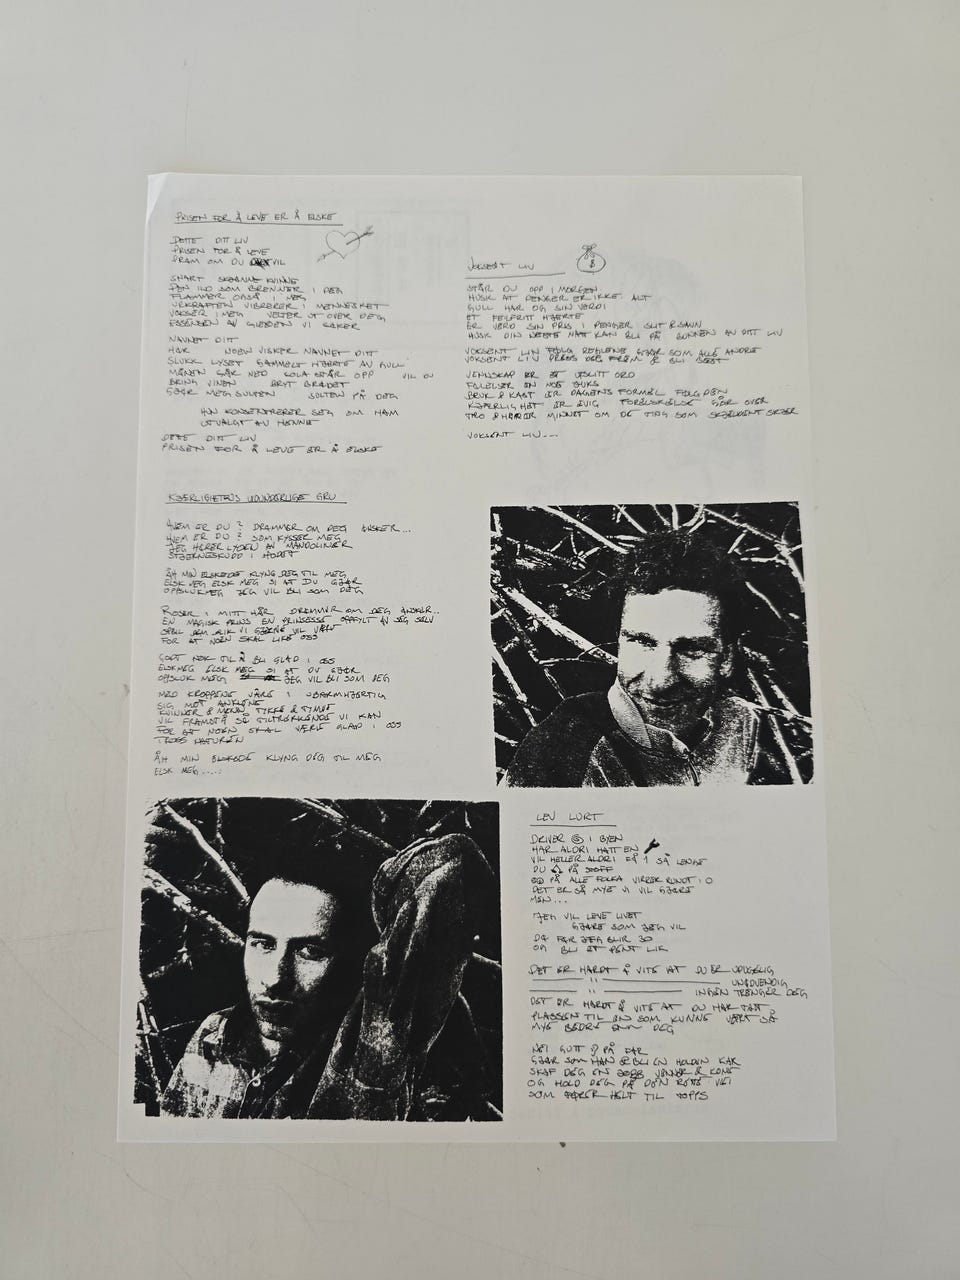 PRISEN FOR Å LEVE ER Å ELSKE
DETTE DITT LIV
PRISEN FOR Å LEVE
FRAM OM DU VIL
SNART SKJØNNE KVINNE
DEN ILD SOM BRENNER I DEG
FLAMMER OGSÅ I MEG
URKRAFTEN VIBRERER I MENNESKET
VOKSER I MEG VELTER UT OVER DEG
ESSENSEN AV GLEDEN VI SØKER
NAVNET DITT
HØR NOEN VISKER NAVNET DITT
SLUKK LYSET GAMMELT HJERTE AV GULL
MÅNEN GÅR NED SOLA STÅR OPP VIL DU
BRING VINEN BRYT BRØDET
GJØR MEG SULTEN SULTEN PÅ DEG
HUN KONSENTRERER SEG OM HAM
UTVALGT AV HENNE
DETTE DITT LIV
PRISEN FOR Å LEVE ER Å ELSKE
VOKSENT LIV
$
STÅR DU OPP I MORGEN
HUSK AT PENGER ER IKKE ALT
GULL HAR OG SIN VERDI
ET FEILFRITT HJERTE
ER VERD SIN PRIS I PENGER SLIT & SAVN
HUSK DIN NESTE NATT KAN BLI PÅ BUNNEN AV DITT LIV
VOKSENT LIV FØLG REGLENE GJØR SOM ALLE ANDRE
VOKSENT LIV PRESS DEG FREM & BLI BEST
VENNSKAP ER ET UTSLITT ORD
FØLELSER EN NØS SUKS
BRUK & KAST ER DAGENS FORMEL FØLG DEN
KJÆRLIGHET ER EVIG FORELSKELSE GÅR OVER
TRO & HÅP ER MINNET OM DE TING SOM SKJELDENT SKJER
VOKSENT LIV....
KJÆRLIGHETENS VIDUNDERLIGE GRU
HVEM ER DU? DRØMMER OM DEG ØNSKER...
HVEM ER DU? SOM KYSSER MEG
JEG HØRER LYDEN AV MANDOLINER
STJERNESKUDD I HODET
ÅH MIN ELSKEDE KLYNG DEG TIL MEG
ELSK MEG ELSK MEG SI AT DU GJØR
OPPSLUK MEG JEG VIL BLI SOM DEG
ROSER I MITT HÅR DRØMMER OM DEG ØNSKER..
EN MAGISK PRINS EN PRINSESSE OPPFYLT AV SEG SELV
SPILL DEM SLIK VI GJERNE VIL VÆRE
FOR AT NOEN SKAL LIKE OSS
GODT NOK TIL Å BLI GLAD I OSS
ELSK MEG ELSK MEG SI AT DU GJØR
OPPSLUK MEG JEG VIL BLI SOM DEG
MED KROPPENE VÅRE I UBARMHJERTIG
SIG MOT ANKLENE
KVINNER & MENN TYKKE & TYNNE
VIL FRAMSTÅ SÅ TILTREKKENDE VI KAN
FOR AT NOEN SKAL VÆRE GLAD I OSS
TROSS NATUREN
ÅH MIN ELSKEDE KLYNG DEG TIL MEG
ELSK MEG.....
LEV LURT
DRIVER I BYEN
HAR ALDRI HATT EN
VIL HELLER ALDRI FÅ 1 SÅ LENGE
DU PÅ
PÅ ALLE FOLKA VIRRER RUNDT I 0
DET ER SÅ MYE VI VIL GJØRE
MEN...
JEG VIL LEVE LIVET
GJØRE SOM JEG VIL
DØ FØR JEG BLIR 30
OG BLI ET PENT LIK
DET ER HARDT Å VITE AT DU ER UDUGELIG
" UNØDVENDIG
" INGEN TRENGER DEG
DET ER HARDT Å VITE AT DU HAR TATT
PLASSEN TIL EN SOM KUNNE VÆRT SÅ
MYE BEDRE ENN DEG
NEI GUTT PÅ FAR
GJØR SOM HAN & BLI EN HOLDEN KAR
SKAF DEG EN JOBB VENNER & KONE
OG HOLD DEG PÅ DEN RETTE VEI
SOM FØRER HELT TIL TOPPS